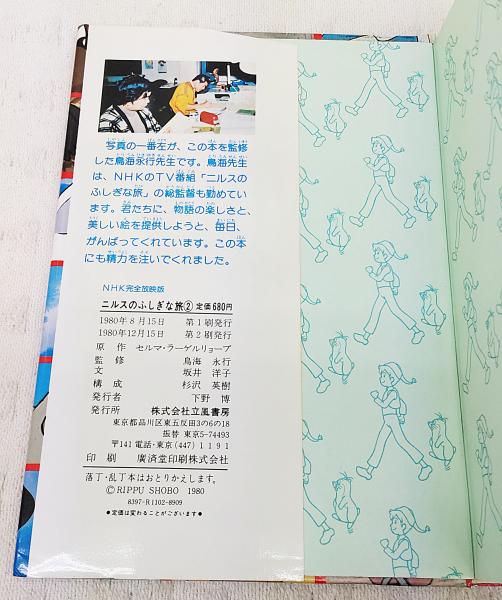 写真の一番左が、この本を監修
した鳥海永行先生です。鳥海先生
は、NHKのTV番組「ニルスの
ふしぎな旅」の総監督も勤めてい
ます。君たちに、物語の楽しさと、
美しい絵を提供しようと、毎日、
がんばってくれています。この本
にも精力を注いでくれました。
NHK完全放映版
ニルスのふしぎな旅② 定価680円
1980年8月15日 第1刷発行
1980年12月15日 第2刷発行
原作 セルマ・ラーゲルリョーブ
監修 鳥海 永行
文 坂井 洋子
構成 杉沢 英樹
発行者 下野 博
発行所 株式会社立風書房
東京都品川区東五反田3の6の18
振替 東京5-74493
〒141 電話・東京(447)1191
印刷 廣済堂印刷株式会社
落丁・乱丁本はおとりかえします。
©RIPPU SHOBO 1980
8397-R1102-8909
●定価は変わることがございます●